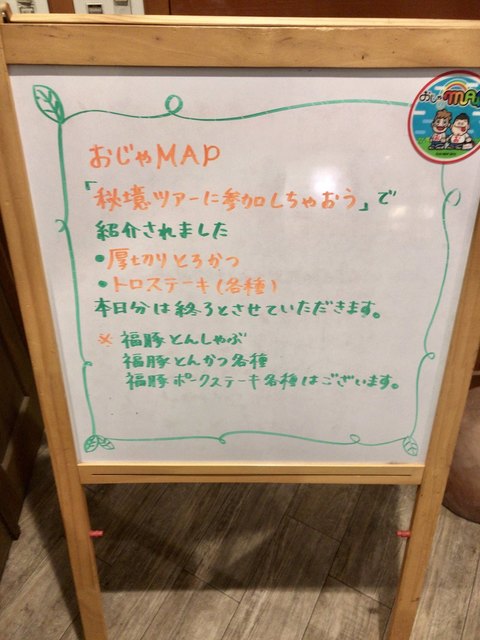 おじゃMAP
おじゃMAP
「秘境ツアーに参加しちゃおう」で
紹介されました
•厚切りとろかつ
•トロステーキ(各種)
本日分は終了とさせていただきます。
※ 福豚とんしゃぶ
福豚とんかつ各種
福豚ポークステーキ各種はございます。